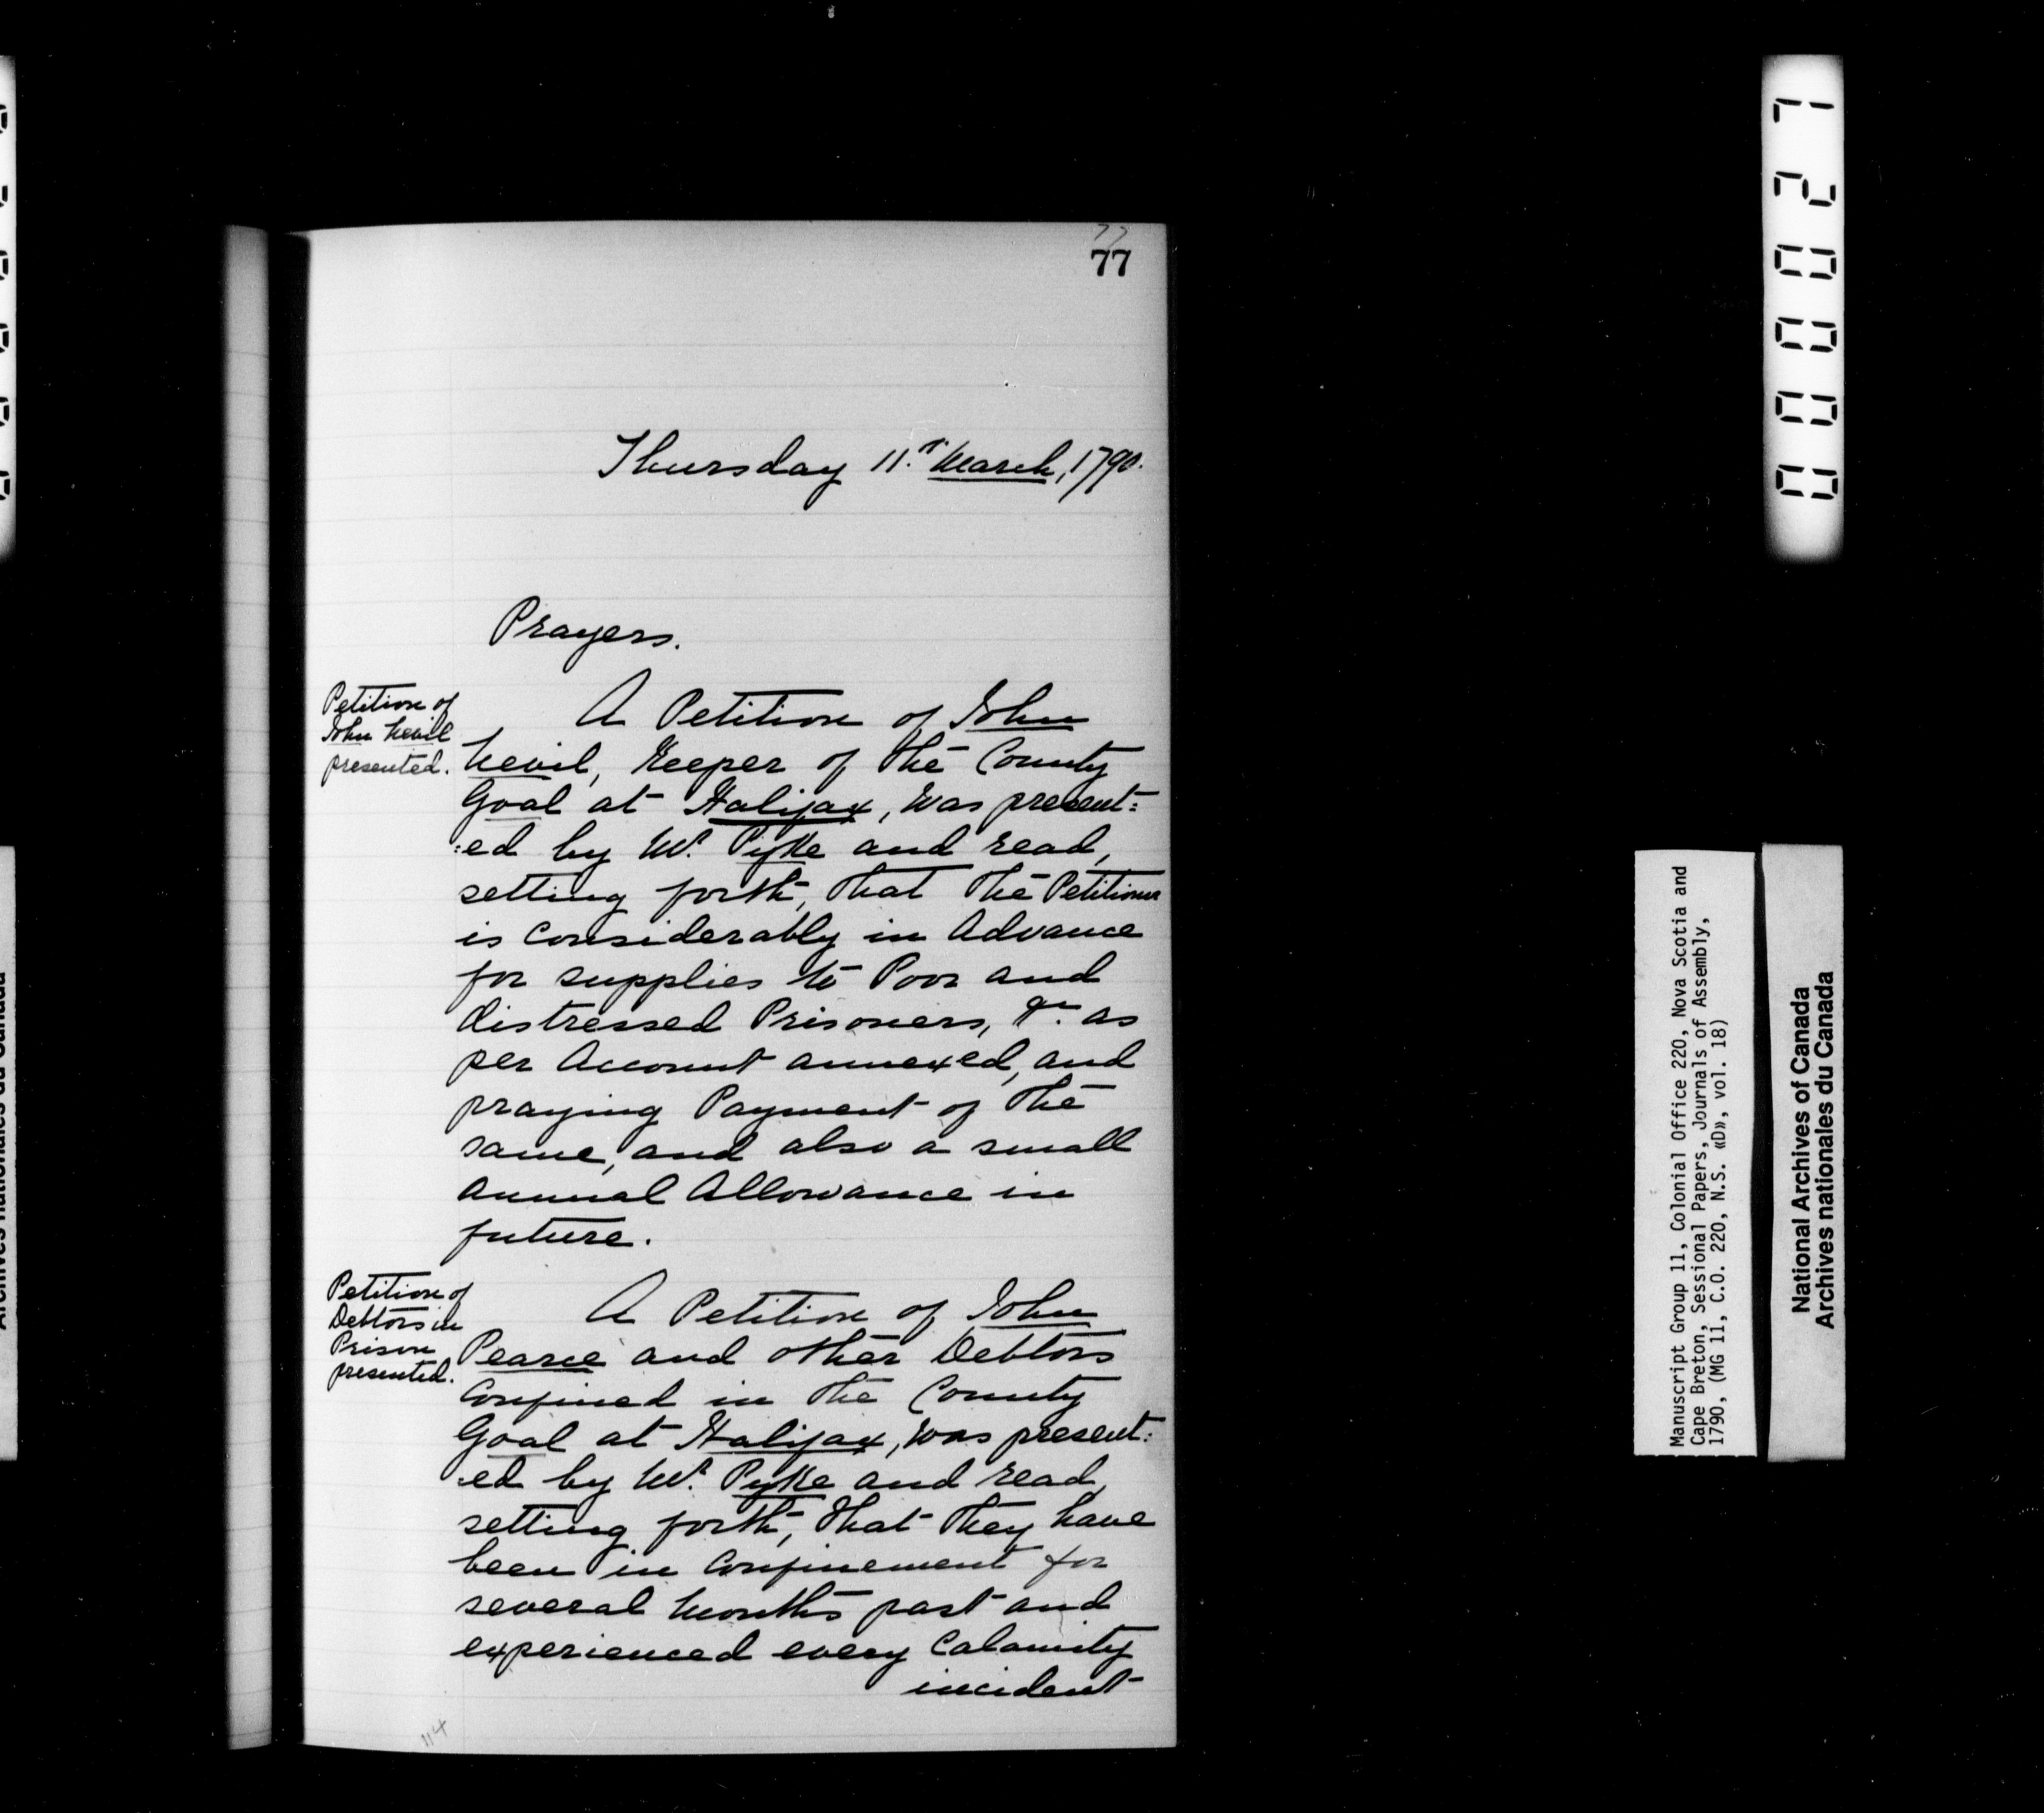 77
77
Thursday 11.th March, 1790.
Prayers.
Petition of
John Nevil
presented.
A Petition of John
Nevil, Keeper of the County
Goal at Halifax, was present=
=ed by Mr. Pyke and read,
setting forth, that the Petitioner
is considerably in Advance
for supplies to Poor and
distressed Prisoners, &c. as
per Account annexed, and
praying Payment of the
same, and also a small
annual Allowance in
future.
Petition of
Debtors in
Prison
presented.
A Petition of John
Pearce and other Debtors
Confined in the County
Goal at Halifax, was present=
=ed by Mr. Pyke and read,
setting forth, that they have
been in Confinement for
several Months past and
experienced every Calamity
incident
114
000027
Manuscript Group 11, Colonial Office 220, Nova Scotia and
Cape Breton, Sessional Papers, Journals of Assembly,
1790, (MG 11, C.O. 220, N.S. «D», vol. 18)
National Archives of Canada
Archives nationales du Canada